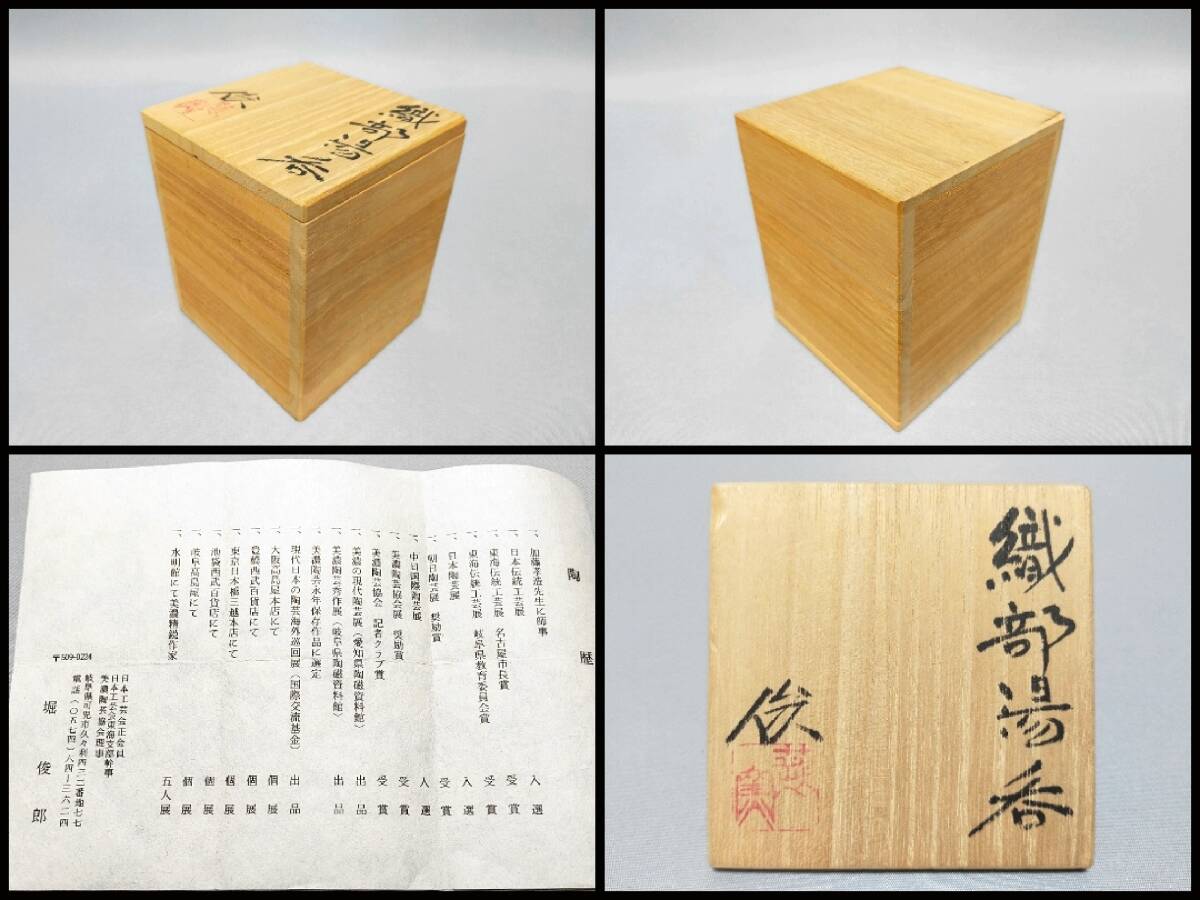 織部湯呑
俊
陶歴
一、加藤孝造先生に師事
一、日本伝統工芸展 入選
一、東海伝統工芸展 名古屋市長賞 受賞
一、東海伝統工芸展 岐阜県教育委員会賞 受賞
一、日本陶芸展 入選
一、朝日陶芸展 奨励賞 受賞
一、中日国際陶芸展 入選
一、美濃陶芸協会展 奨励賞 受賞
一、美濃陶芸協会 記者クラブ賞 受賞
一、美濃の現代陶芸展（愛知県陶磁資料館） 出品
一、美濃陶芸秀作展（岐阜県陶磁資料館） 出品
一、美濃陶芸永年保存作品に選定
一、現代日本の陶芸海外巡回展（国際交流基金） 出品
一、大阪高島屋本店にて 個展
一、豊橋西武百貨店にて 個展
一、東京日本橋三越本店にて 個展
一、池袋西武百貨店にて 個展
一、岐阜高島屋にて 個展
一、水明館にて美濃精鋭作家 五人展
日本工芸会正会員
日本工芸会東海支部幹事
美濃陶芸協会理事
〒509-0224
岐阜県可児市久々利四三二番地七七
電話（〇五七四）六四－三六二四
堀俊郎
織部湯呑
俊